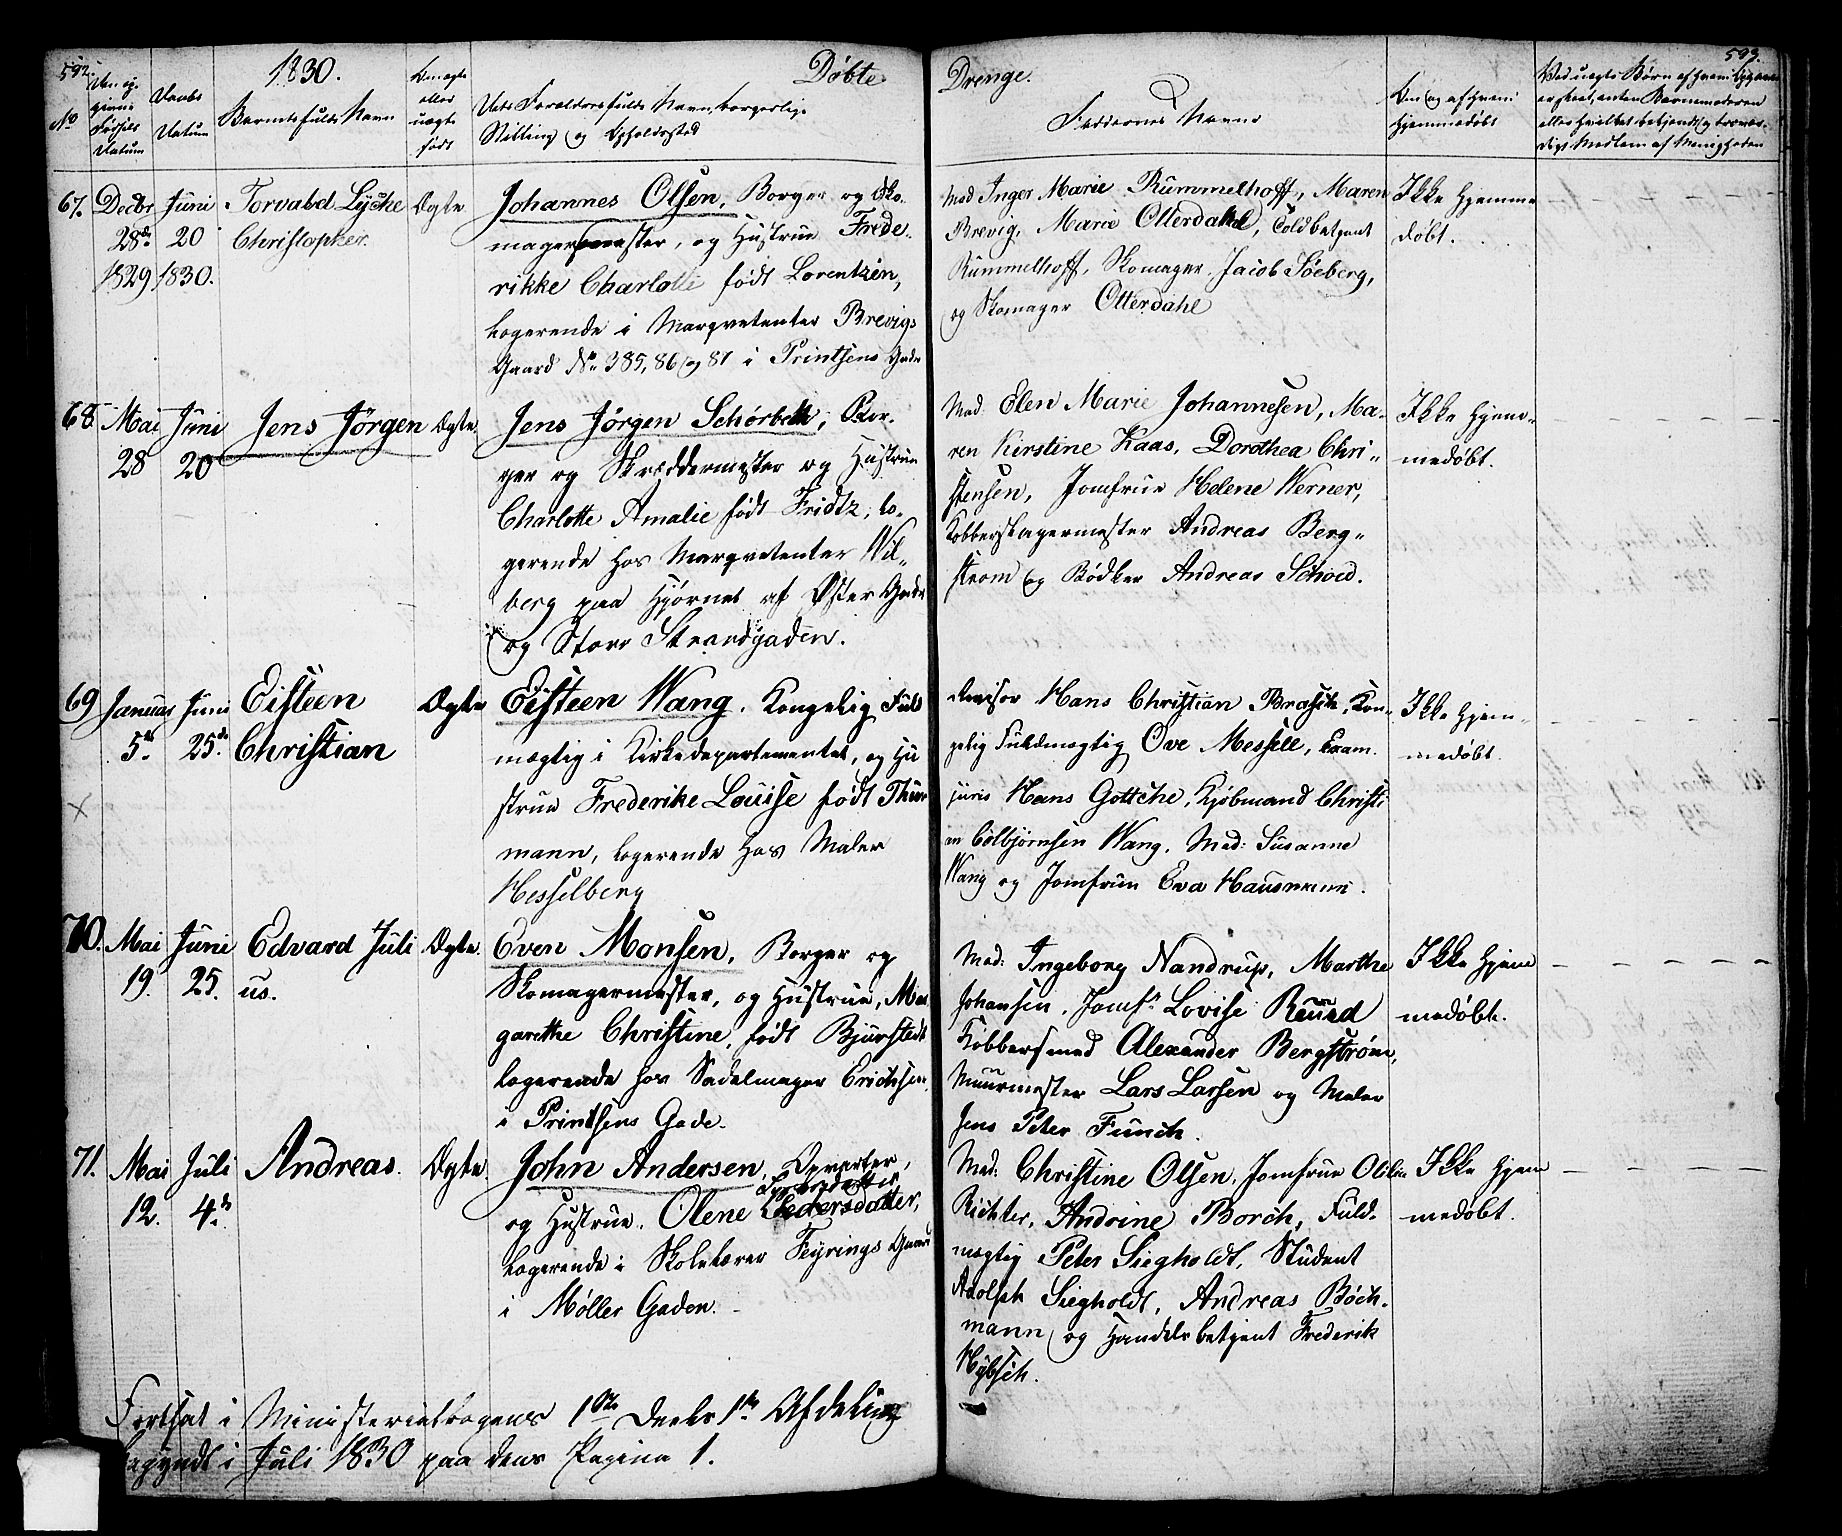 592.
1830.
Døbte
Drenge.
593.
No
Den og-
givne
Fødsels
Datum
Daabs
Datum
Barnets fulde Navn
Om ægte
eller
uægte
født
Dets Forældres fulde Navn, borgerlige
Stilling og Opholdssted
Faddernes Navne
Om og af hvem
hjemmedøbt
Ved uægte Børn af hvem Opgaven
er skeet, enten Barnemoderen
eller hvilket bekjendt og troevær-
digt Medlem af Menigheden
67. Decbr Juni Torvald Lyche Ægte
28de 20 Christopher.
1829 1830.
Johannes Olsen, Borger og Sko-
magermester, og Hustrue Frede-
rikke Charlotte født Lorentzen,
logerende i Marqvetenter Brevigs
Gaard No 385, 86 og 87 i Printsens Gade
Mad Inger Marie Rummelhoff, Maren
Brevig, Marie Otterdahl, Toldbetjent
Rummelhoff, Skomager Jacob Søeberg,
og Skomager Otterdahl
Ikke hjemme
døbt.
68. Mai Juni Jens Jørgen Ægte.
28 20
Jens Jørgen Schørbeck, Bor-
ger og Skræddermester og Hustrue
Charlotte Amalie født Fridtz, lo-
gerende hos Marqvetenter Wil-
berg paa Hjørnet af Øster Gade
og Store Strandgaden.
Mad: Elen Marie Johannesen, Ma-
ren Kirstine Kaas, Dorothea Chri-
stensen, Jomfrue Helene Werner,
Kobberslagermester Andreas Berg-
strom og Bødker Andreas Schou.
Ikke hjem-
medøbt.
69 Januar Juni Eisteen Ægte
5te 25de Christian
Eisteen Wang, Kongelig Fuld
mægtig i Kirkedepartementet, og Hu
strue Frederike Louise født Thur
mann, logerende hos Maler
Hesselberg
Revisor Hans Christian Brasch, Kon-
gelig Fuldmægtig Ove Messell, Exam.
juris Hans Gottche, Kjøbmand Christi
an Colbjørnsen Wang, Mad: Susanne
Wang og Jomfrue Eva Hausmann.
Ikke hjem-
medøbt.
70. Mai Juni Edvard Juli Ægte.
19. 25. us.
Even Monsen, Borger og
Skomagermester, og Hustrue, Mar
garethe Christine, født Bjurstedt
logerende hos Sadelmager Erichsen
i Printsens Gade.
Mad: Ingeborg Nandrup, Marthe
Johansen, Jomfr Lovise Ruud
Kobbersmed Alexander Bergstrøm,
Muurmester Lars Larsen og Maler
Jens Peter Funch.
Ikke hjem
medøbt.
71. Mai Juli Andreas. Ægte.
12. 4de
John Andersen, Opvarter,
og Hustrue, Olene Pedersdatter,
logerende i Skolelærer Feyrings Gaard
i Møller Gaden.
Mad: Christine Olsen, Jomfrue Oline
Richter, Andrine Borch, Fuld-
mægtig Peter Siegholdt, Student
Adolph Siegholdt, Andreas Bøch-
mann og Handelsbetjent Frederik
Hybsch.
Ikke hjem
medøbt.
Fortsat i Ministerialbogens 1ste Deels 1ste Afdeling
begyndt i Juli 1830 paa dens Pagina 1.